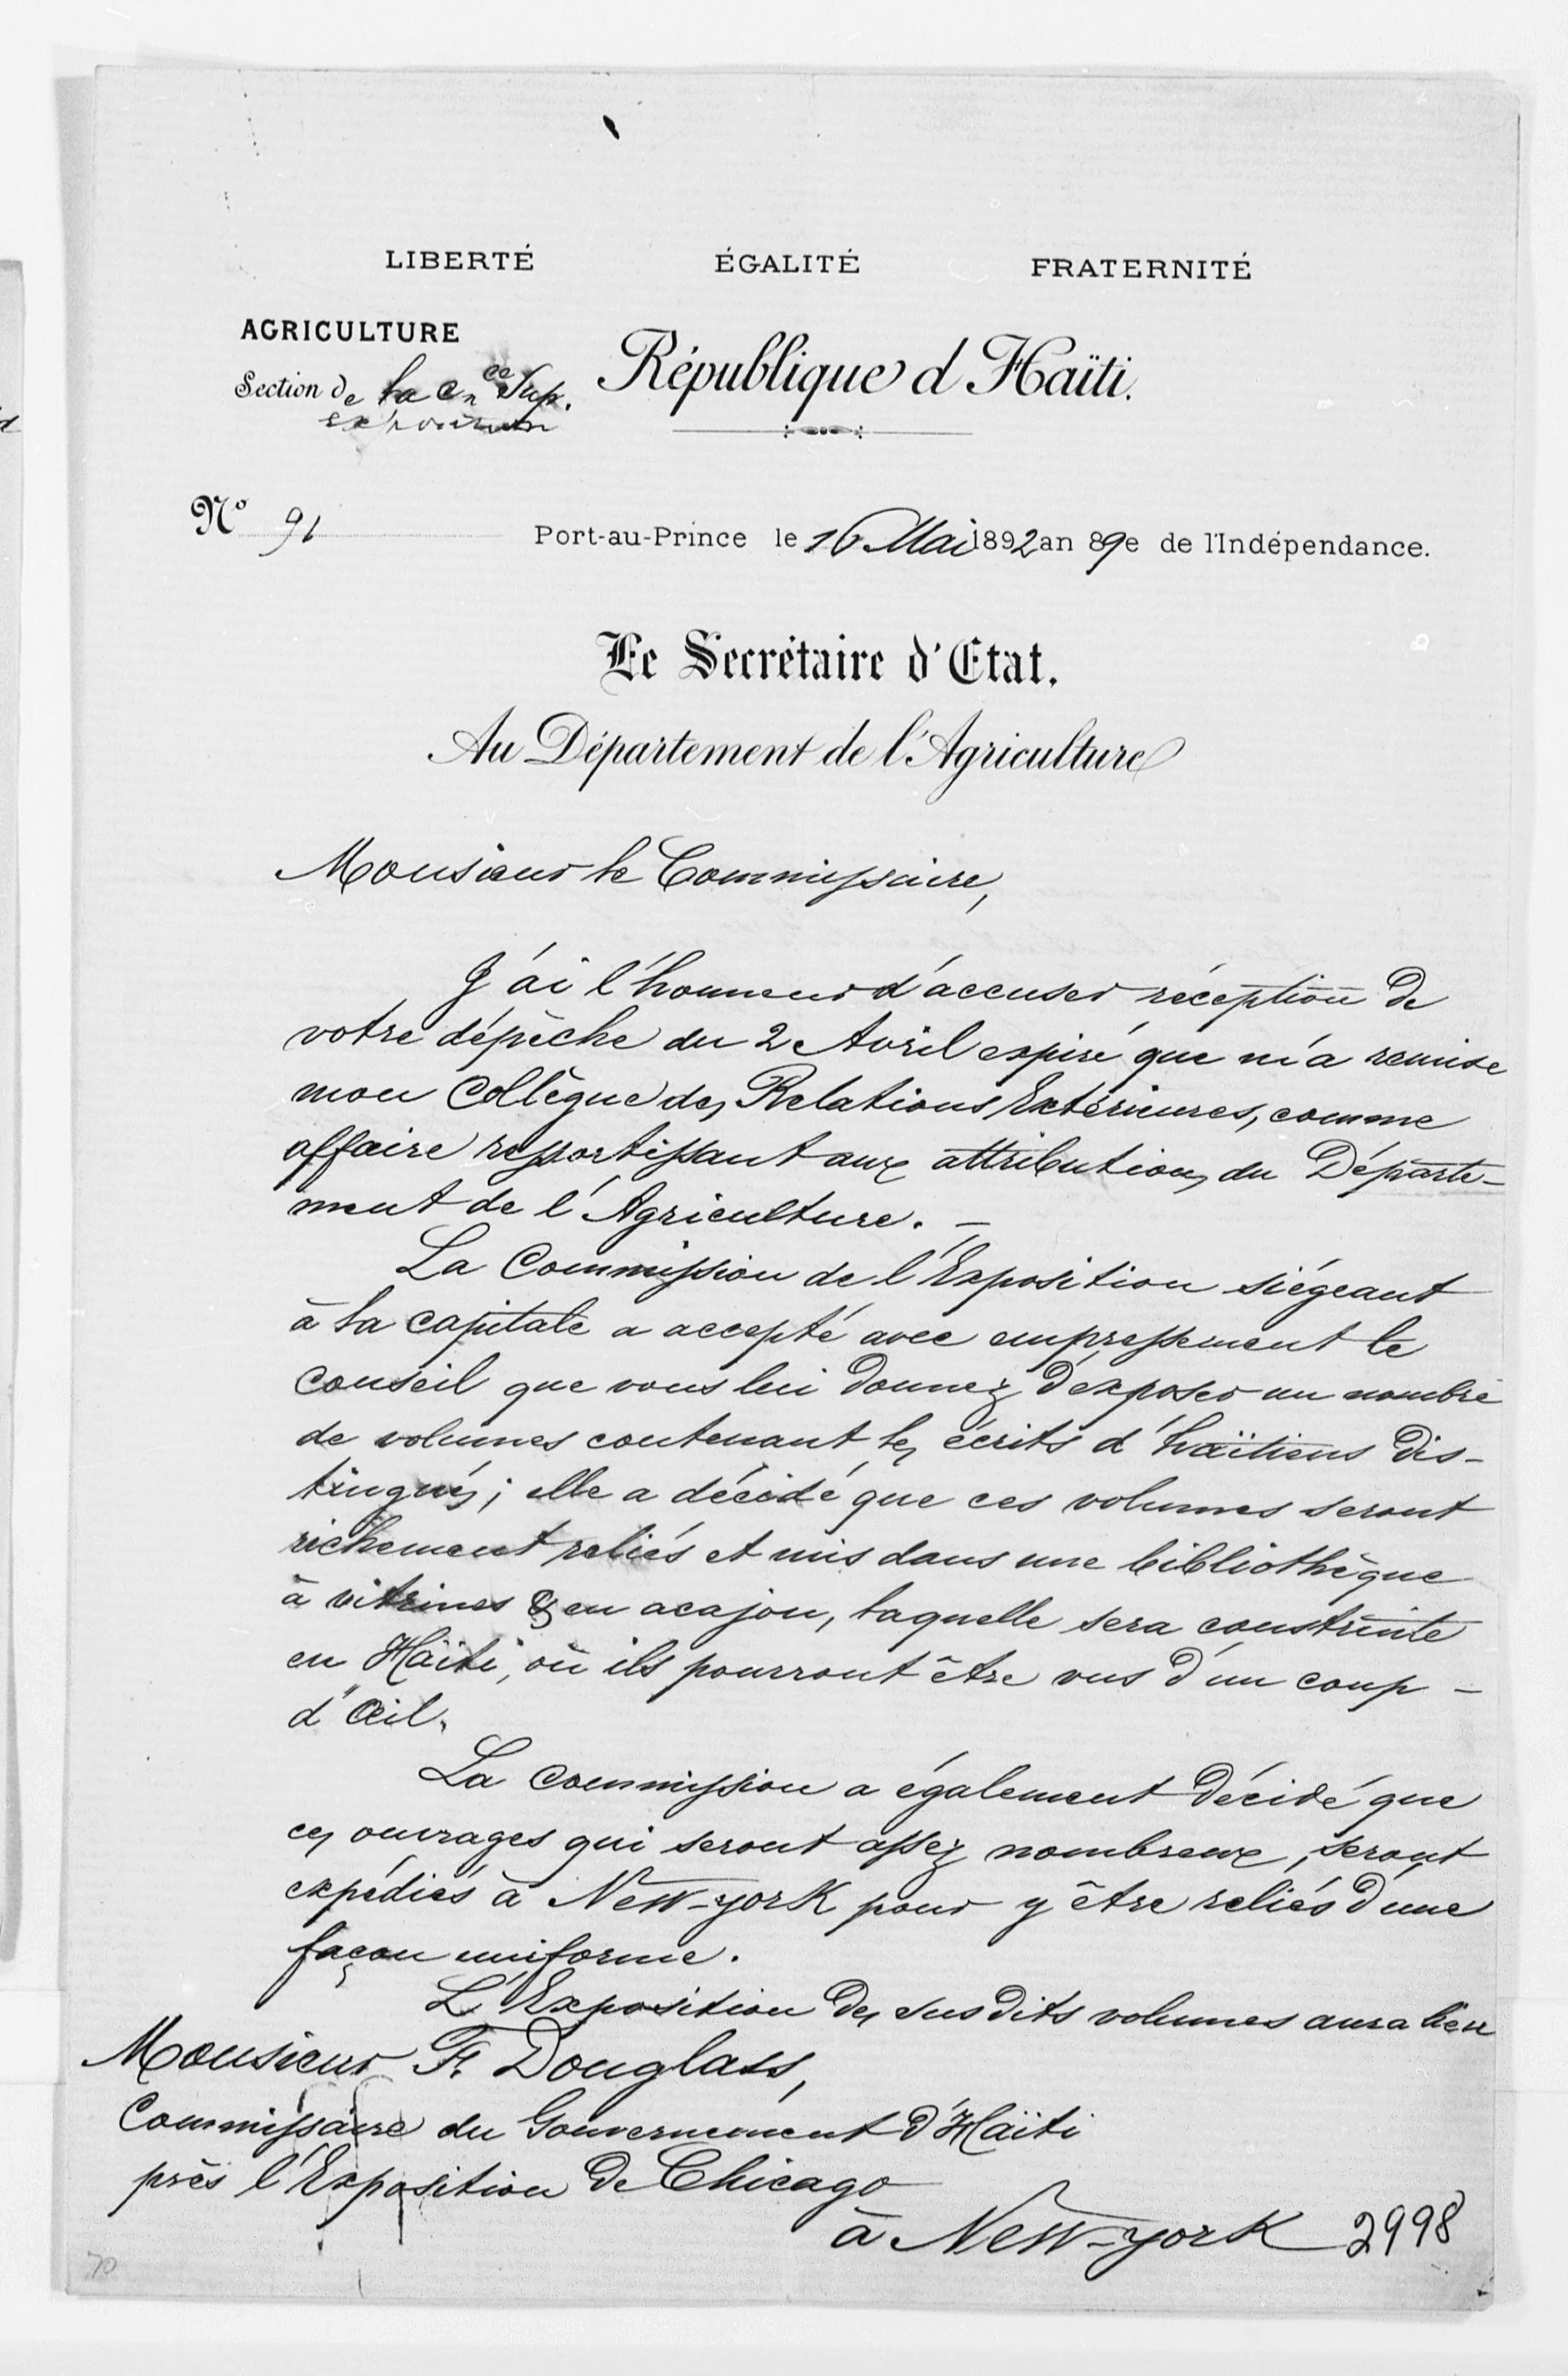 LIBERTÉ ÉGALITÉ FRATERNITÉ
AGRICULTURE
République d Haïti.
Section de la Cnce Sup.
No 91
Port-au-Prince le 16 Mai 1892 an 89e de l'Indépendance.
Le Secrétaire d'Etat.
Au Département de l'Agriculture
Monsieur le Commissaire,
J'ai l'honneur d'accuser réception de
votre dépêche du 2 Avril expiré que m'a remise
mon Collègue des Relations Extérieures, comme
affaire ressortissant aux attributions du Départe-
ment de l'Agriculture. —
La Commission de l'Exposition siégeant
à la capitale a accepté avec empressement le
conseil que vous lui donnez d'exposer un nombre
de volumes contenant les écrits d'haïtiens dis-
tingués; elle a décidé que ces volumes seront
richement reliés et mis dans une bibliothèque
à vitrines & en acajou, laquelle sera construite
en Haïti, où ils pourront être vus d'un coup -
d'Œil.
La Commission a également décidé que
ces ouvrages qui seront assez nombreux, seront
expédiés à New-york pour y être reliés d'une
façon uniforme.
L'Exposition des susdits volumes aura lieu
Monsieur F. Douglass,
Commissaire du Gouvernement d'Haïti
près l'Exposition de Chicago
à New-york 2998
70